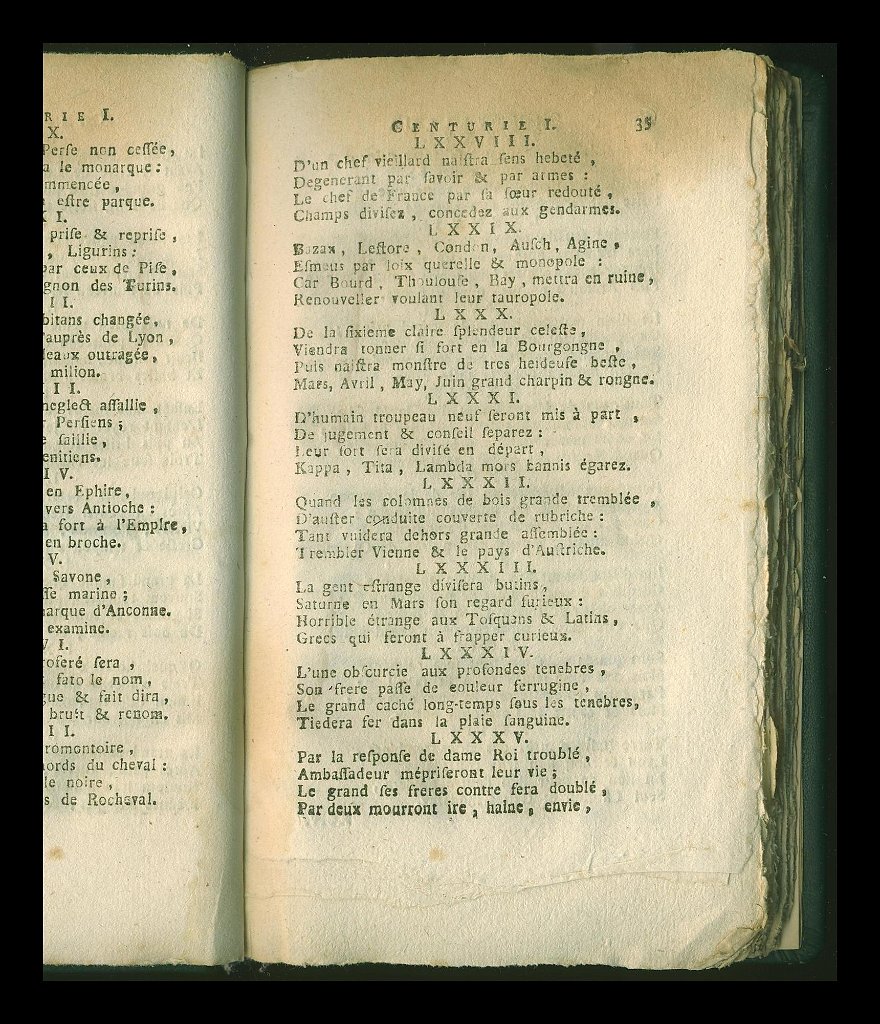 RIE I.
X.
Perse non cessée,
a le monarque:
mmencée,
estre parque.
X I.
prise & reprise,
, Ligurins:
par ceux de Pise,
gnon des Turins.
I I.
bitans changée,
'auprès de Lyon,
leaux outragée,
milion.
I I I.
neglect assallie,
r Persiens;
e saillie,
enitiens.
I V.
en Ephire,
vers Antioche:
a fort à l'Empire,
en broche.
V.
Savone,
sse marine;
arque d'Anconne.
examine.
V I.
roferé sera,
fato le nom,
gue & fait dira,
bruit & renom.
I I.
romontoire,
ords du cheval:
le noire,
s de Rocheval.
CENTURIE I. 35
LXXVIII.
D'un chef vieillard naistra sens hebeté,
Degenerant par savoir & par armes:
Le chef de France par sa sœur redouté,
Champs divisez, concedez aux gendarmes.
LXXIX.
Bazax, Lestore, Condon, Ausch, Agine,
Esmeus par loix querelle & monopole:
Car Bourd, Thoulouse, Bay, mettra en ruine,
Renouveller voulant leur tauropole.
LXXX.
De la sixieme claire splendeur celeste,
Viendra tonner si fort en la Bourgongne,
Puis naistra monstre de tres heideuse beste,
Mars, Avril, May, Juin grand charpin & rongne.
LXXXI.
D'humain troupeau neuf seront mis à part,
De jugement & conseil separez:
Leur sort sera divisé en départ,
Kappa, Tita, Lambda mors bannis égarez.
LXXXII.
Quand les colomnes de bois grande tremblée,
D'auster conduite couverte de rubriche:
Tant vuidera dehors grande assemblée:
Trembler Vienne & le pays d'Austriche.
LXXXIII.
La gent estrange divisera butins,
Saturne en Mars son regard furieux:
Horrible étrange aux Tosquans & Latins,
Grecs qui seront à frapper curieux.
LXXXIV.
L'une obscurcie aux profondes tenebres,
Son frere passe de couleur ferrugine,
Le grand caché long-temps sous les tenebres,
Tiedera fer dans la plaie sanguine.
LXXXV.
Par la response de dame Roi troublé,
Ambassadeur mépriseront leur vie;
Le grand ses freres contre sera doublé,
Par deux mourront ire, haine, envie,